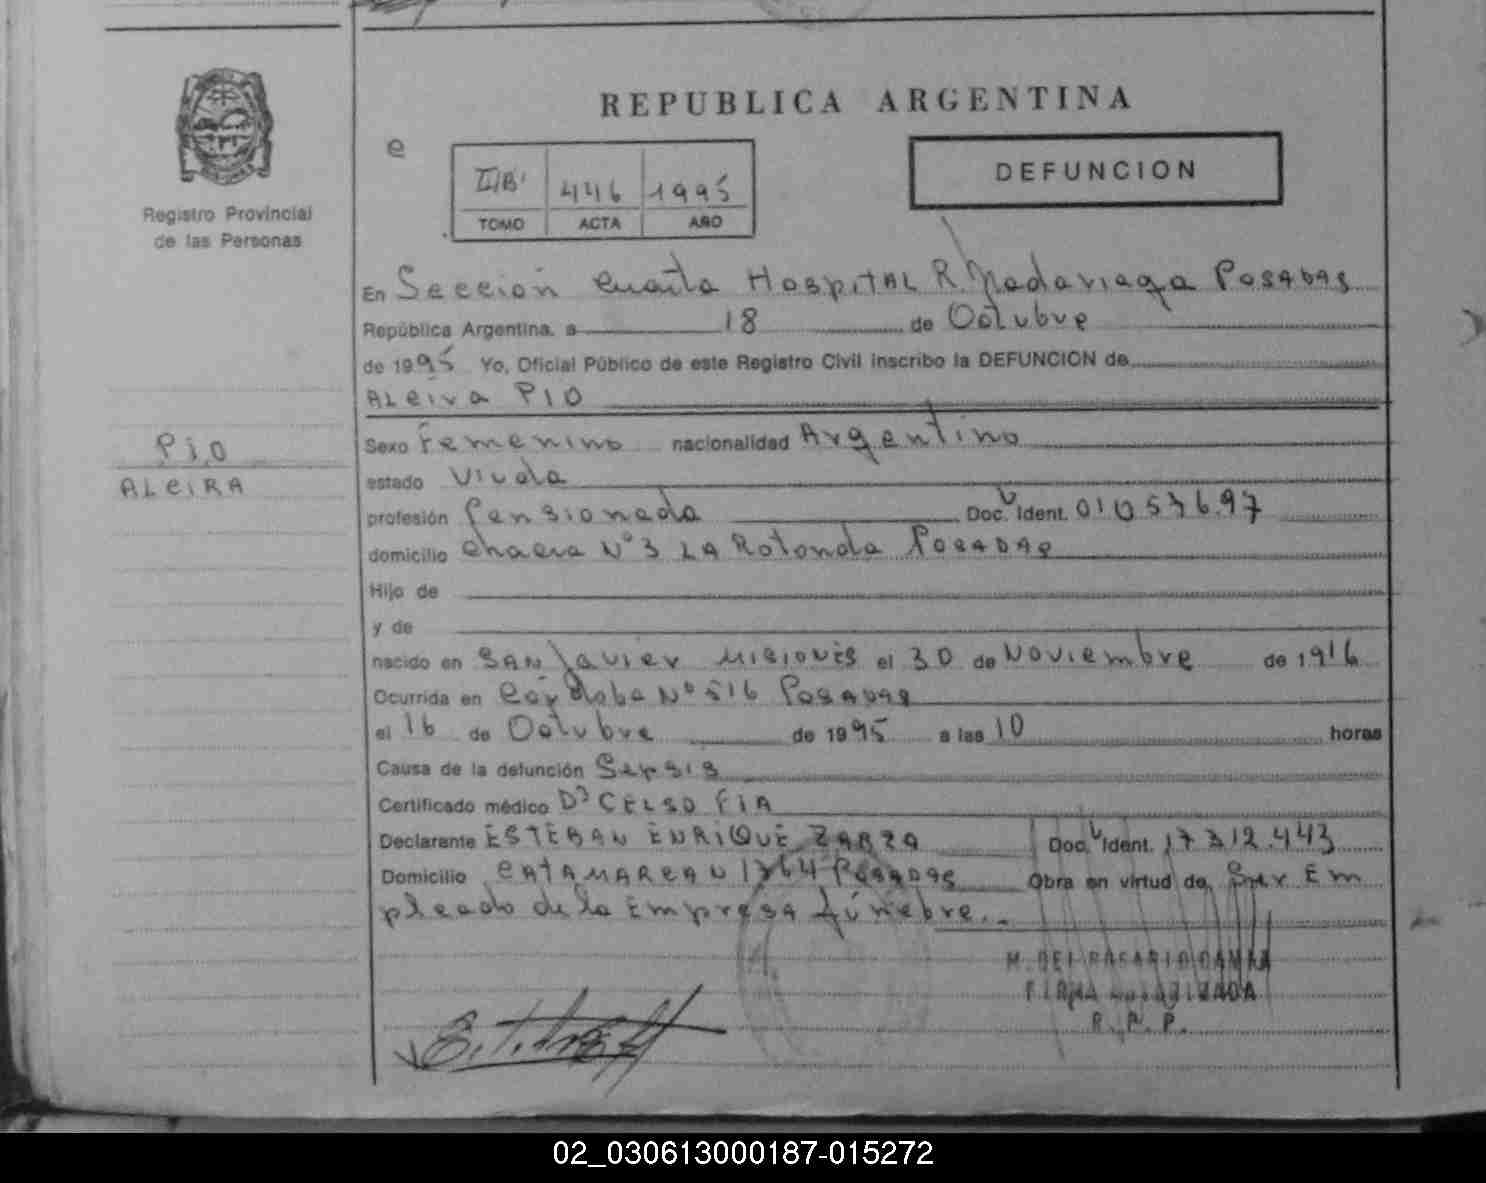 REPUBLICA ARGENTINA
e
DEFUNCION
II/B' 446 1995
TOMO ACTA AÑO
Registro Provincial
de las Personas
En Sección Cuarta Hospital R. Madariaga Posadas
República Argentina, a 18 de Octubre
de 1995 Yo, Oficial Público de este Registro Civil inscribo la DEFUNCION de
ALeiva PIO
PiO
ALeiRA
Sexo Femenino nacionalidad Argentino
estado Viuda
profesión Pensionada Doc. Ident. 01053697
domicilio Chacra N° 3 LA Rotonda Posadas
Hijo de
y de
nacido en SAN Javier Misiones el 30 de Noviembre de 1916
Ocurrida en Córdoba N° 516 Posadas
el 16 de Octubre de 1995 a las 10 horas
Causa de la defunción Sepsis
Certificado médico Dr CELSO FIA
Declarante ESTEBAN ENRIQUE ZARZA Doc. Ident. 17.312.443
Domicilio CATAMARCA N 1764 Posadas Obra en virtud de Ser Em
pleado de la Empresa fúnebre.-
M. DEL ROSARIO
FIRMA AUTORIZADA
R. P. P.
02_030613000187-015272